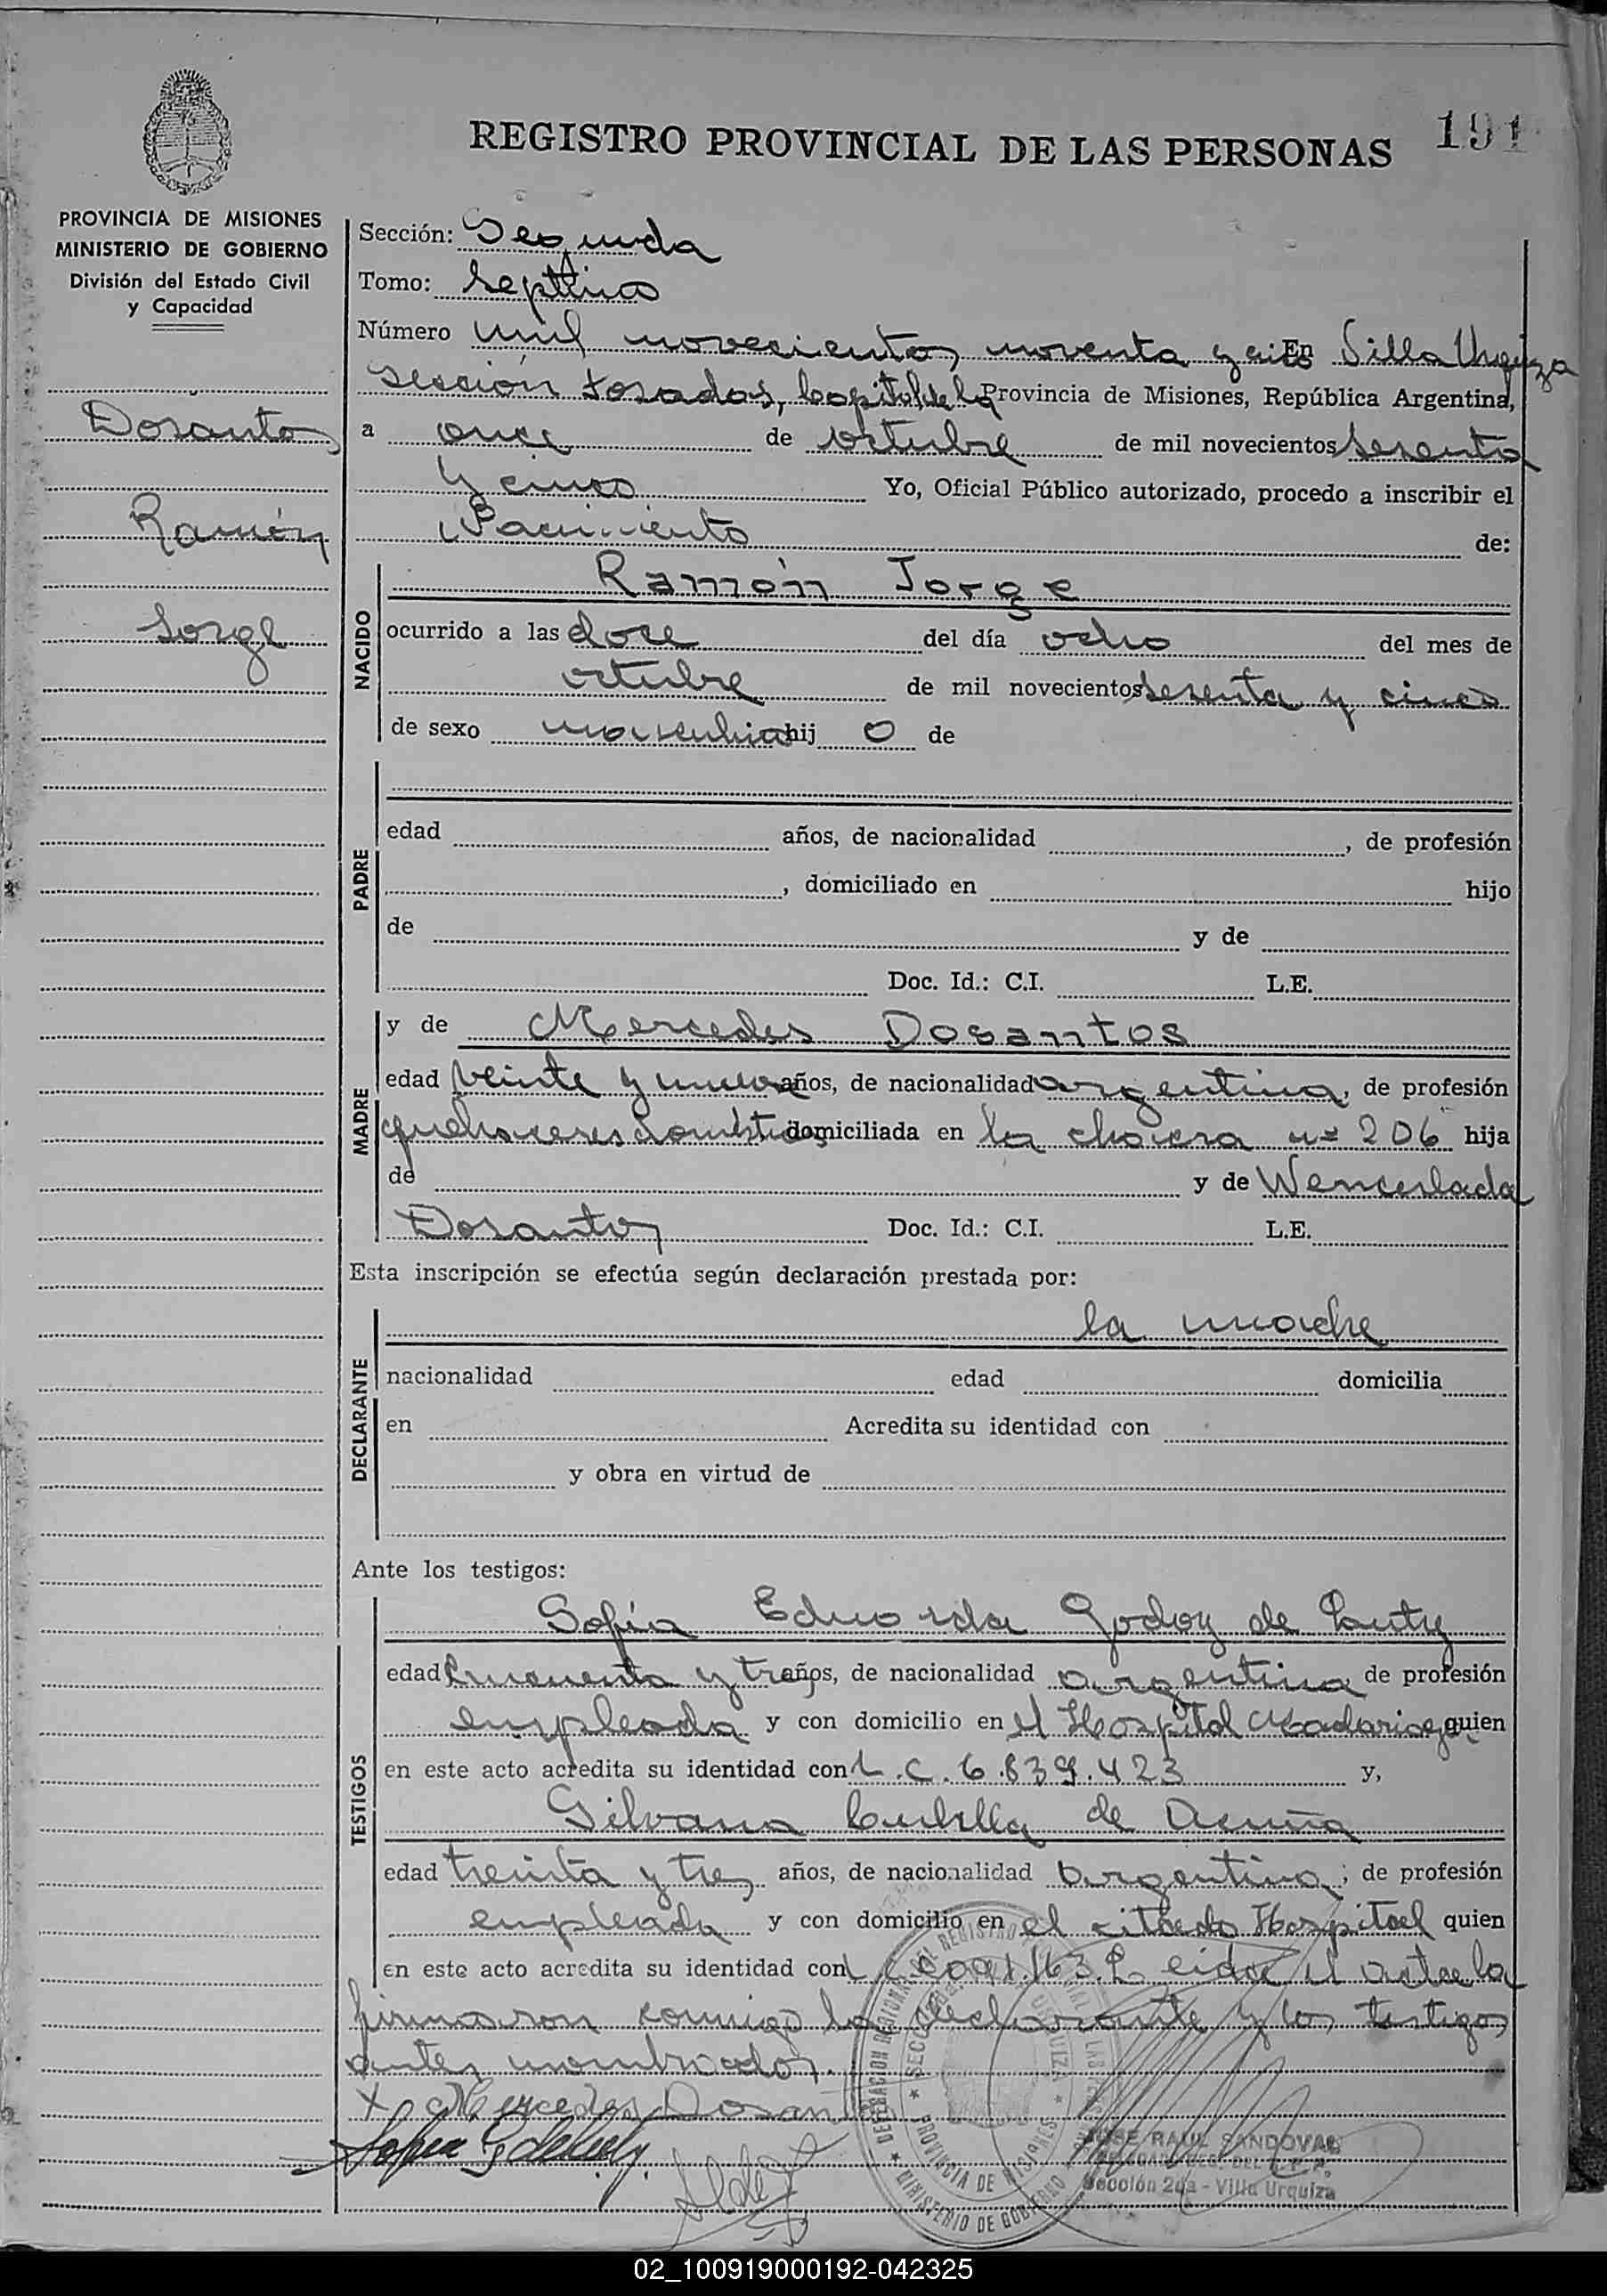 191
REGISTRO PROVINCIAL DE LAS PERSONAS
PROVINCIA DE MISIONES
MINISTERIO DE GOBIERNO
División del Estado Civil
y Capacidad
Dosantos
Ramón
Jorge
Sección: Segunda
Tomo: septimo
Número mil novecientos noventa y En Villa Urquiza
sección Posadas, Capital de la Provincia de Misiones, República Argentina,
a once de octubre de mil novecientos sesenta
y cinco Yo, Oficial Público autorizado, procedo a inscribir el
Nacimiento de:
NACIDO
Ramón Jorge
ocurrido a las doce del día ocho del mes de
octubre de mil novecientos sesenta y cinco
de sexo masculino hij o de
PADRE
edad años, de nacionalidad , de profesión
, domiciliado en hijo
de y de
Doc. Id.: C.I. L.E.
MADRE
y de Mercedes Dosantos
edad veinte y años, de nacionalidad argentina, de profesión
quehaceres domésticos domiciliada en la chacra nº 206 hija
de y de Wenceslada
Dosantos Doc. Id.: C.I. L.E.
Esta inscripción se efectúa según declaración prestada por:
DECLARANTE
la madre
nacionalidad edad domicilia
en Acredita su identidad con
y obra en virtud de
Ante los testigos:
TESTIGOS
Sofía Eduarda Godoy de
edad cincuenta y tres años, de nacionalidad argentina de profesión
empleada y con domicilio en el Hospital Madariaga quien
en este acto acredita su identidad con L.C. 6.839.423 y,
Silvana de Acuña
edad treinta y tres años, de nacionalidad argentina; de profesión
empleada y con domicilio en el citado Hospital quien
en este acto acredita su identidad con el acta la
firmaron conmigo la declarante y los testigos
antes nombrados.
x Mercedes Dosan
DELEGACION REGIONAL DEL REGISTRO
MINISTERIO DE GOBIERNO
PROVINCIA DE MISIONES
JOSE RAUL SANDOVAL
Sección 2da - Villa Urquiza
02_100919000192-042325